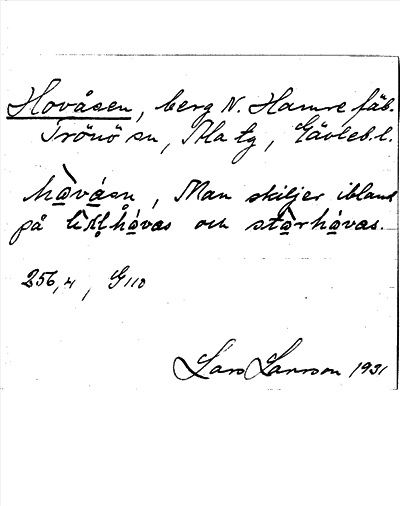 Hovåsen, berg N. Hamre fäb.
Trönö sn, Ala tg, Gävleb.l.
hòvásn, Man skiljer ibland
på hóvas och stòrhóvas.
256,4, G110
Lars Larsson 1931